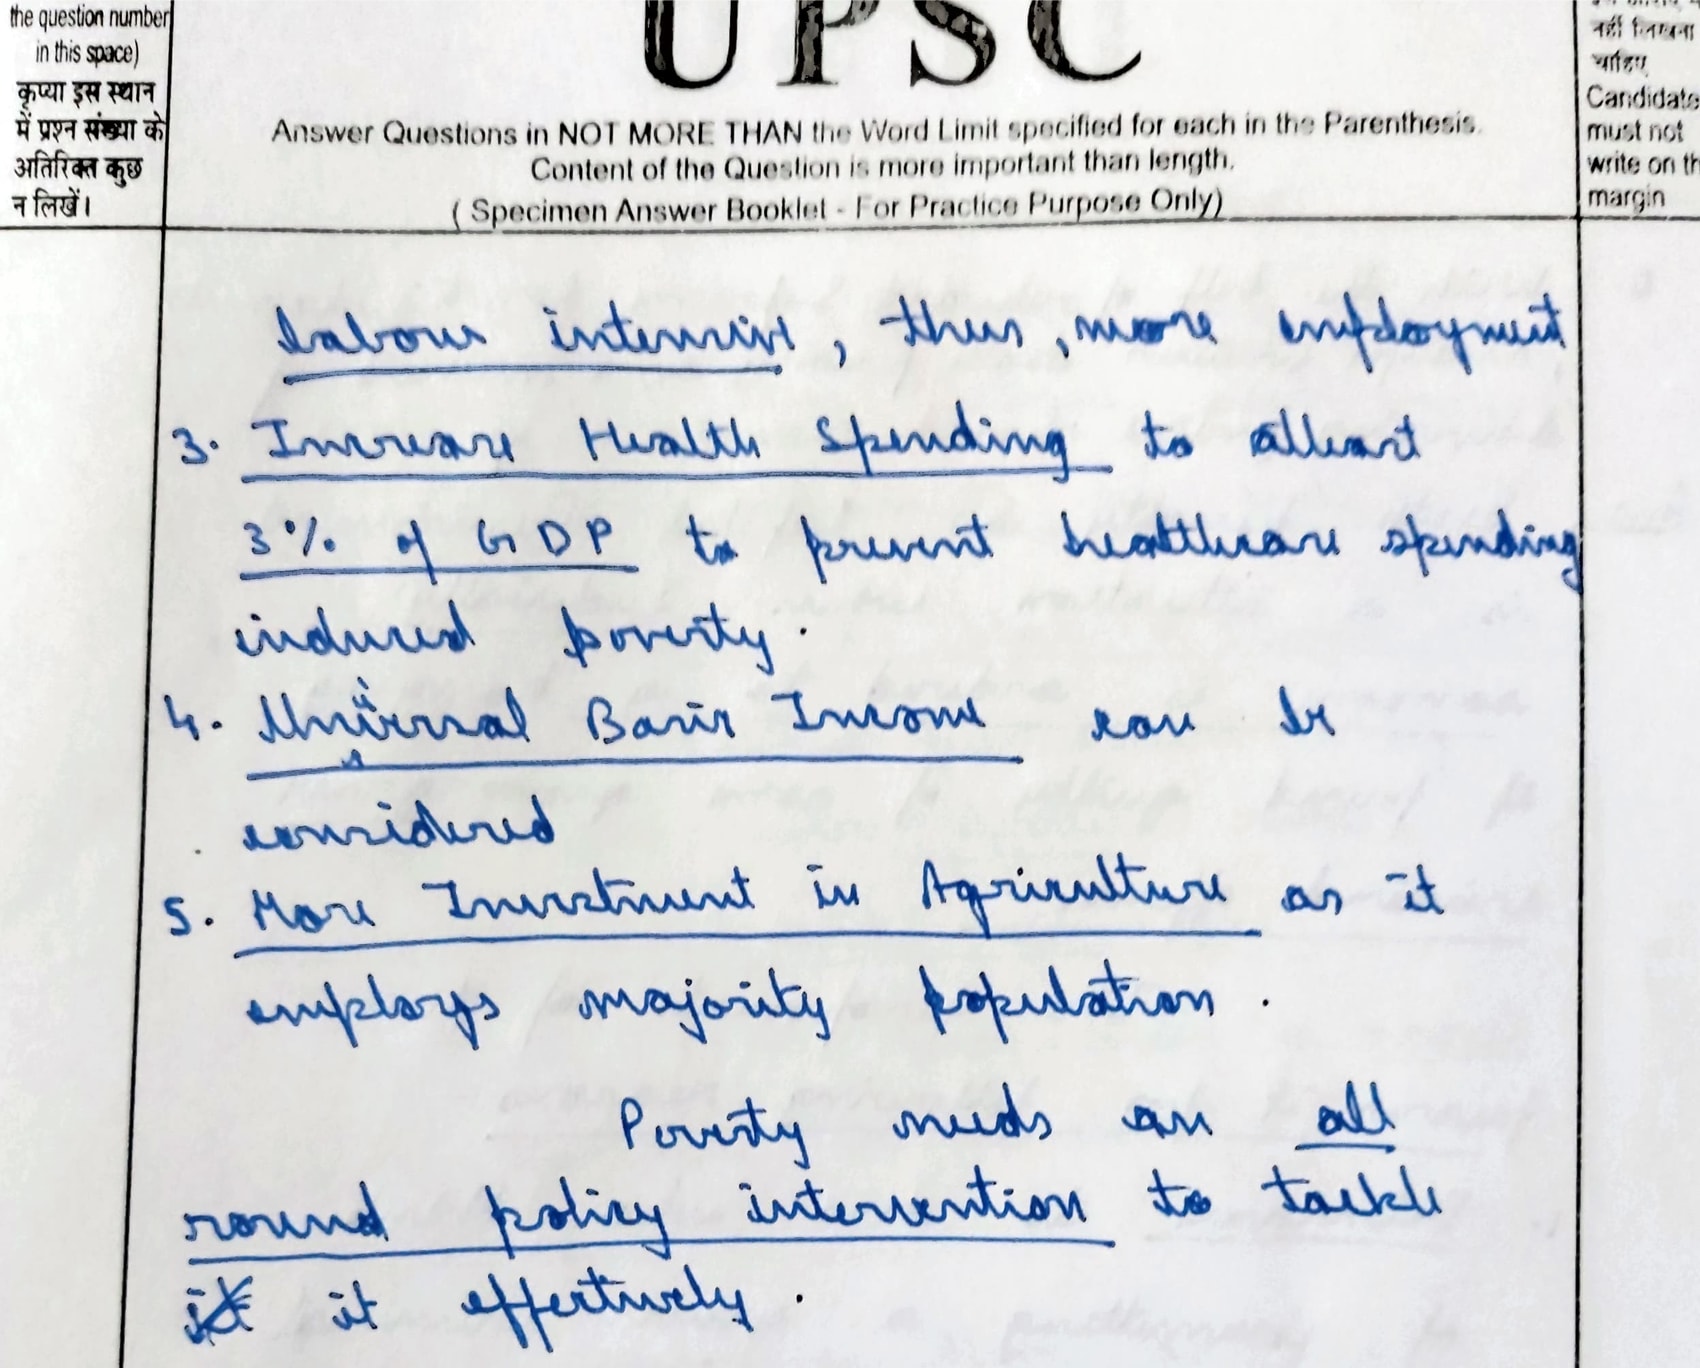 the question number
in this space)
कृप्या इस स्थान
में प्रश्न संख्या के
अतिरिक्त कुछ
न लिखें।
UPSC
Answer Questions in NOT MORE THAN the Word Limit specified for each in the Parenthesis.
Content of the Question is more important than length.
( Specimen Answer Booklet - For Practice Purpose Only)
नहीं लिखना
चाहिए
Candidate
must not
write on th
margin
labour intensive, thus, more employment
3. Increase Health Spending to atleast
3% of GDP to prevent healthcare spending
induced poverty.
4. Universal Basic Income can be
considered
5. More Investment in Agriculture as it
employs majority population.
Poverty needs an all
round policy intervention to tackle
it it effectively.